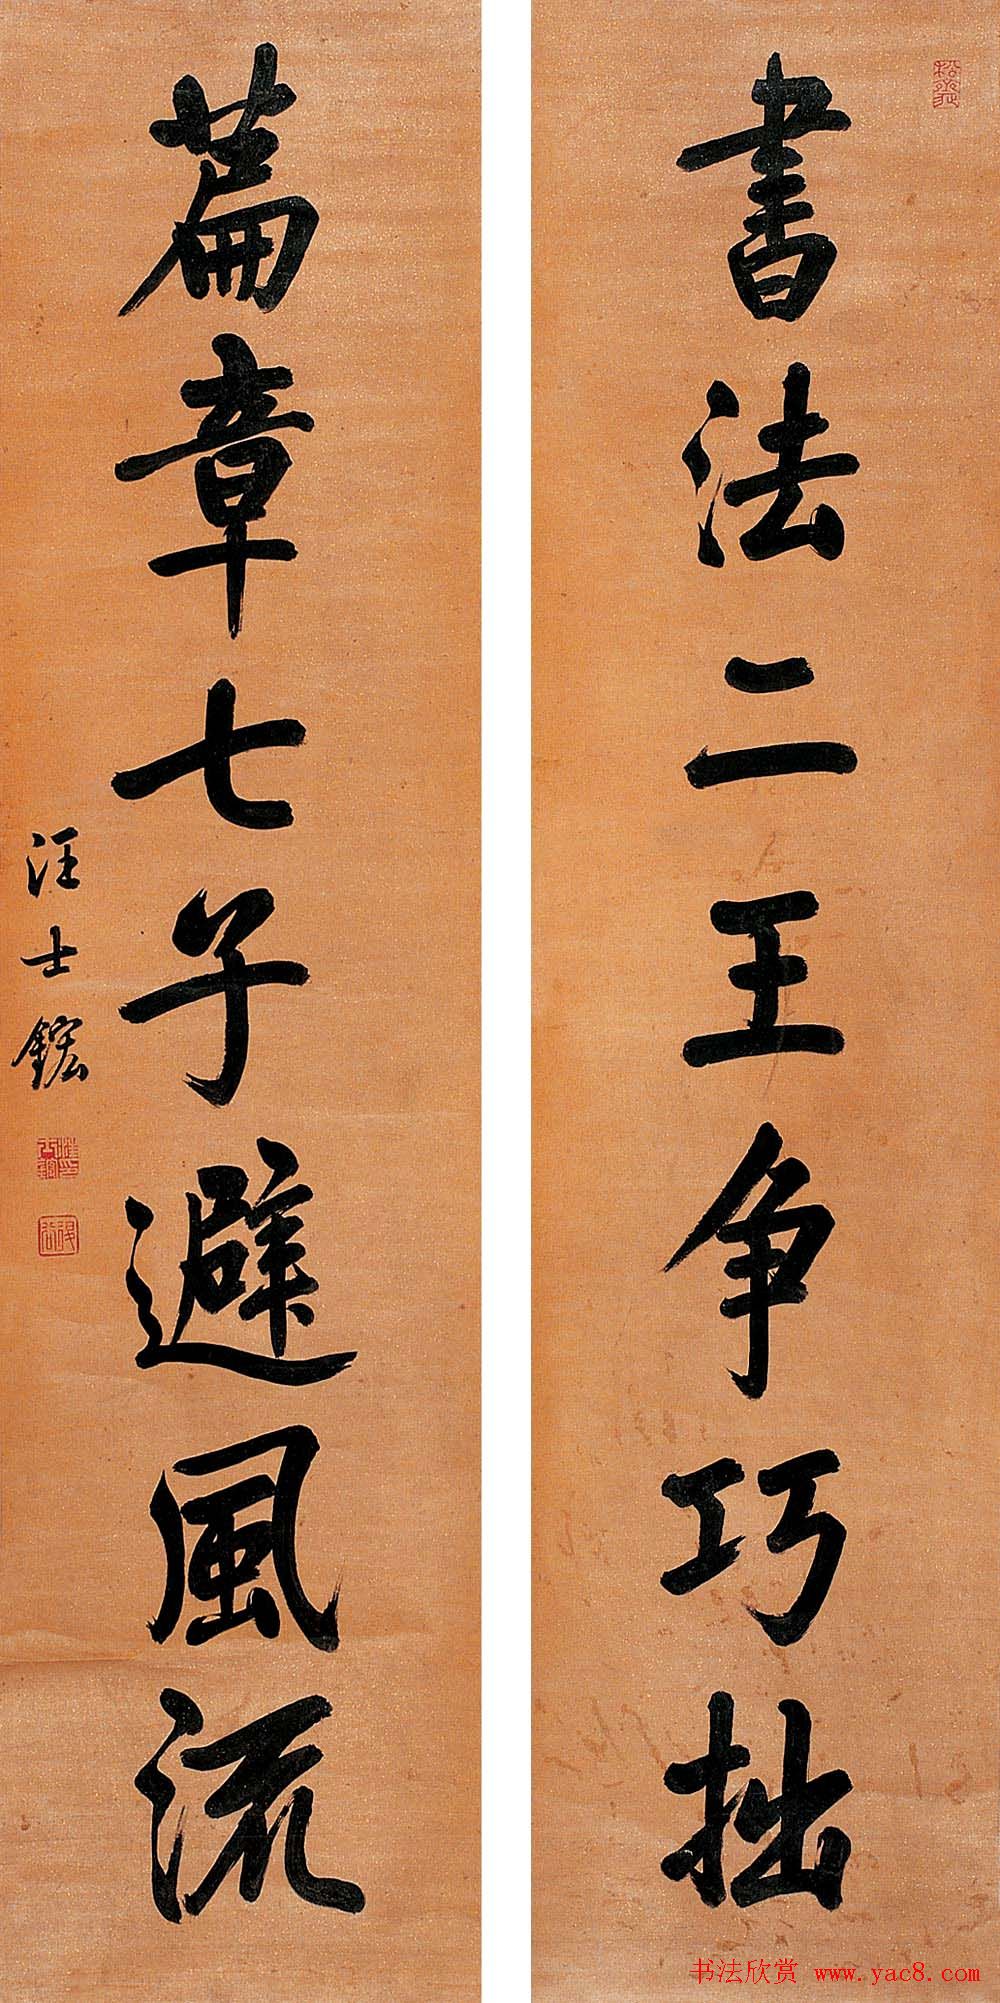 書法二王争巧拙
篇章七子避風流
汪士鋐
书法欣赏 www.yac8.com